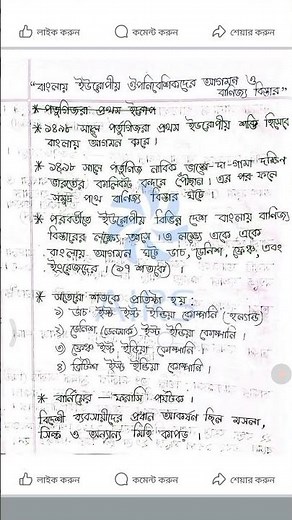 লাইক করুন কমেন্ট করুন শেয়ার করুন
"বাংলায় ইউরোপীয় ঔপনিবেশিকদের আগমন ও
বাণিজ্য বিস্তার"
* পর্তুগিজরা প্রথম
* ১৪৯৮ সালে পর্তুগিজরা প্রথম ইউরোপীয় শক্তি হিসেবে
বাংলায় আগমন করে।
* ১৪৯৮ সালে পর্তুগিজ নাবিক ভাস্কো-দা-গামা দক্ষিণ
ভারতের কালিকট বন্দরে পৌছান। এর পর ফলে
সমুদ্র পথে বাণিজ্য বিস্তার ঘটে।
* পরবর্তীতে ইউরোপীয় বিভিন্ন দেশ বাংলায় বাণিজ্য
বিস্তারের লক্ষ্যে আসে। এ লক্ষ্যে একে একে
বাংলায় আগমন ঘটে ডাচ, ডেনিশ, ফ্রেঞ্চ, এবং
ইংরেজদের। (১৭ শতকে)।
* সতেরো শতকে প্রতিষ্ঠা হয়:
১) ডাচ ইস্ট ইন্ডিয়া কোম্পানি (হল্যান্ড)
২) ডেনিশ (ডেনমার্ক) ইস্ট ইন্ডিয়া কোম্পানি।
৩) ফ্রেঞ্চ ইস্ট ইন্ডিয়া কোম্পানি।
৪) ব্রিটিশ ইস্ট ইন্ডিয়া কোম্পানি।
* বার্নিয়ের — ফরাসি পর্যটক।
বিদেশী ব্যবসায়ীদের প্রধান আকর্ষণ ছিল মসলা,
সিল্ক ও অন্যান্য মিহি কাপড়।
লাইক করুন কমেন্ট করুন শেয়ার করুন